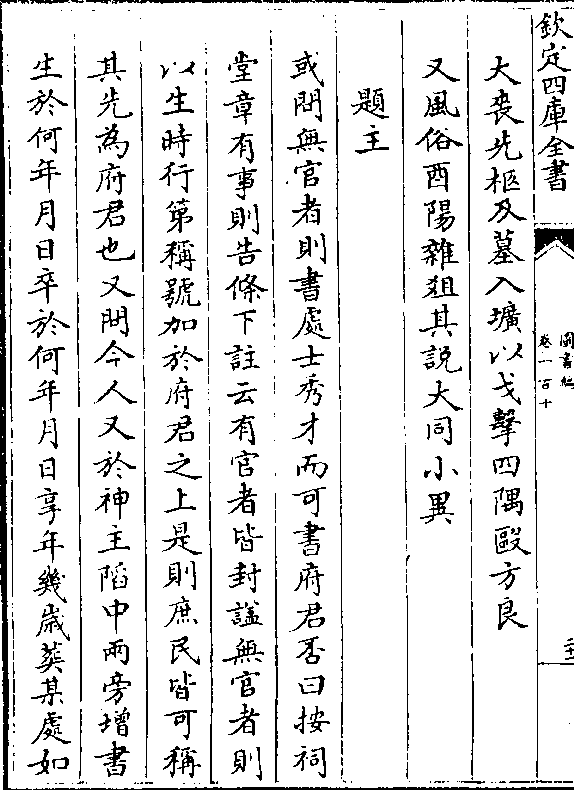 欽定四庫全書
圖書編
卷一百十
大喪先柩及墓入壙以戈擊四隅毆方良
又風俗酉陽雜俎其説大同小異
題主
或問無官者則書處士秀才而可書府君否曰按祠
堂章有事則告條下註云有官者皆封諡無官者則
以生時行第稱號加於府君之上是則庶民皆可稱
其先為府君也又問今人又於神主陷中兩旁增書
生於何年月日卒於何年月日享年幾歲葬某處如